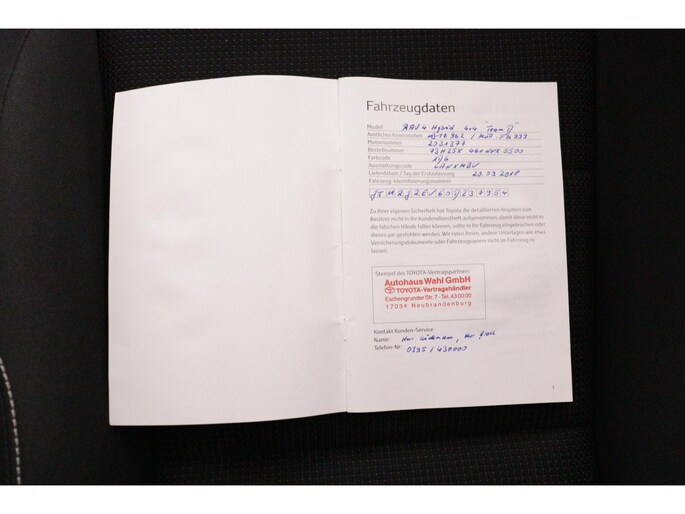 Fahrzeugdaten
Modell RAV 4 Hybrid 4x4 "Team D"
Amtliches Kennzeichen
Motornummer
Bestellnummer
Farbcode
Ausstattungscode
Lieferdatum / Tag der Erstzulassung 20.03.2018
Fahrzeug-Identifizierungsnummer
Zu Ihrer eigenen Sicherheit hat Toyota die detaillierten Angaben zum
Besitzer nicht in Ihr Kundendienstheft aufgenommen, damit diese nicht in
die falschen Hände fallen können, sollte in Ihr Fahrzeug eingebrochen oder
dieses gar gestohlen werden. Wir raten Ihnen, andere Unterlagen wie etwa
Versicherungsdokumente oder Fahrzeugpapiere nicht im Fahrzeug zu
lassen.
Stempel des TOYOTA-Vertragspartners
Autohaus Wahl GmbH
TOYOTA-Vertragshändler
Eschengrunder Str. 7 - Tel. 43 00 00
17034 Neubrandenburg
Kontakt Kunden-Service
Name: Hr
Telefon-Nr: 0395 / 430000
1